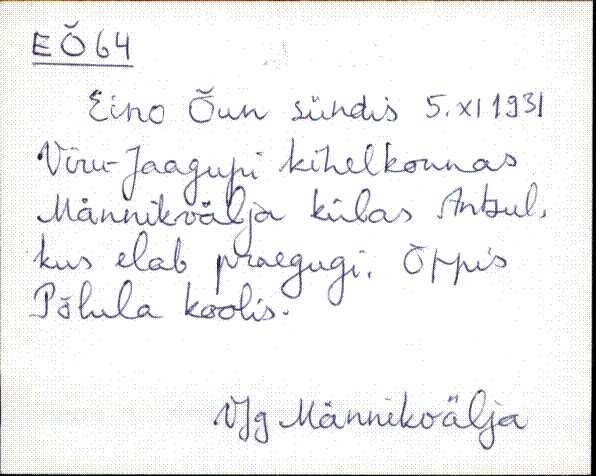 EÕ64
Eino Õun sündis 5.XI 1931
Viru-Jaagupi kihelkonnas
Männikvälja külas Antsul,
kus elab praegugi. Õppis
Põlula koolis.
VJg Männikvälja